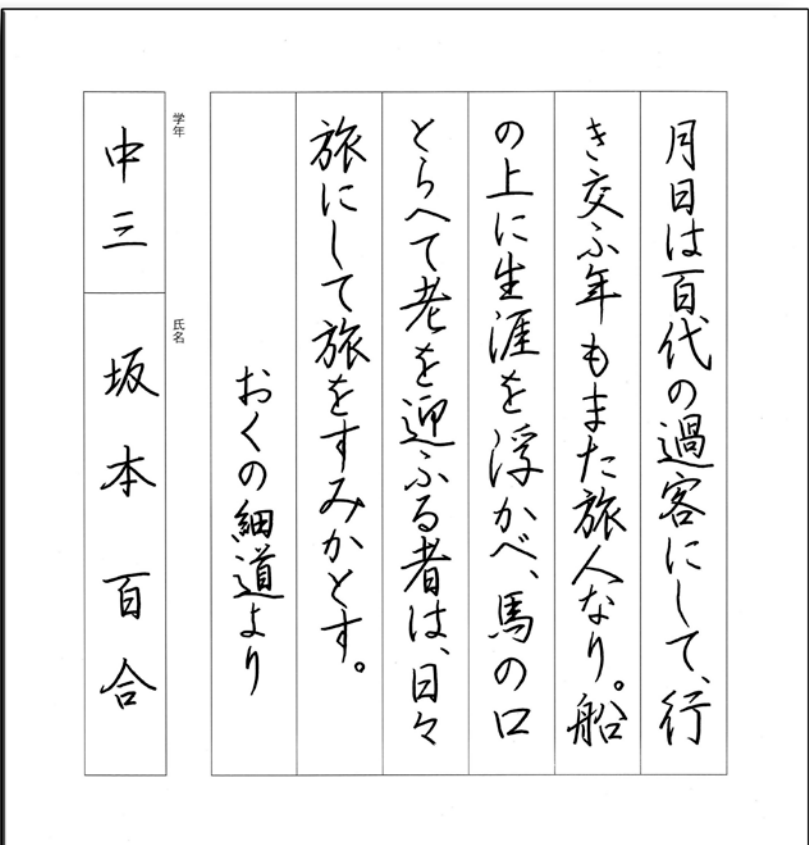 月日は百代の過客にして、行
き交ふ年もまた旅人なり。船
の上に生涯を浮かべ、馬の口
とらへて老を迎ふる者は、日々
旅にして旅をすみかとす。
おくの細道より
学年
中三
氏名
坂本百合